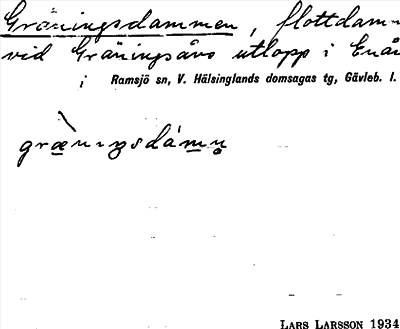 Gräningsdammen, flottdamm
vid Gräningsåns utlopp i Enån
i Ramsjö sn, V. Hälsinglands domsagas tg, Gävleb. l.
græ̀nıŋsdámn̥
LARS LARSSON 1934